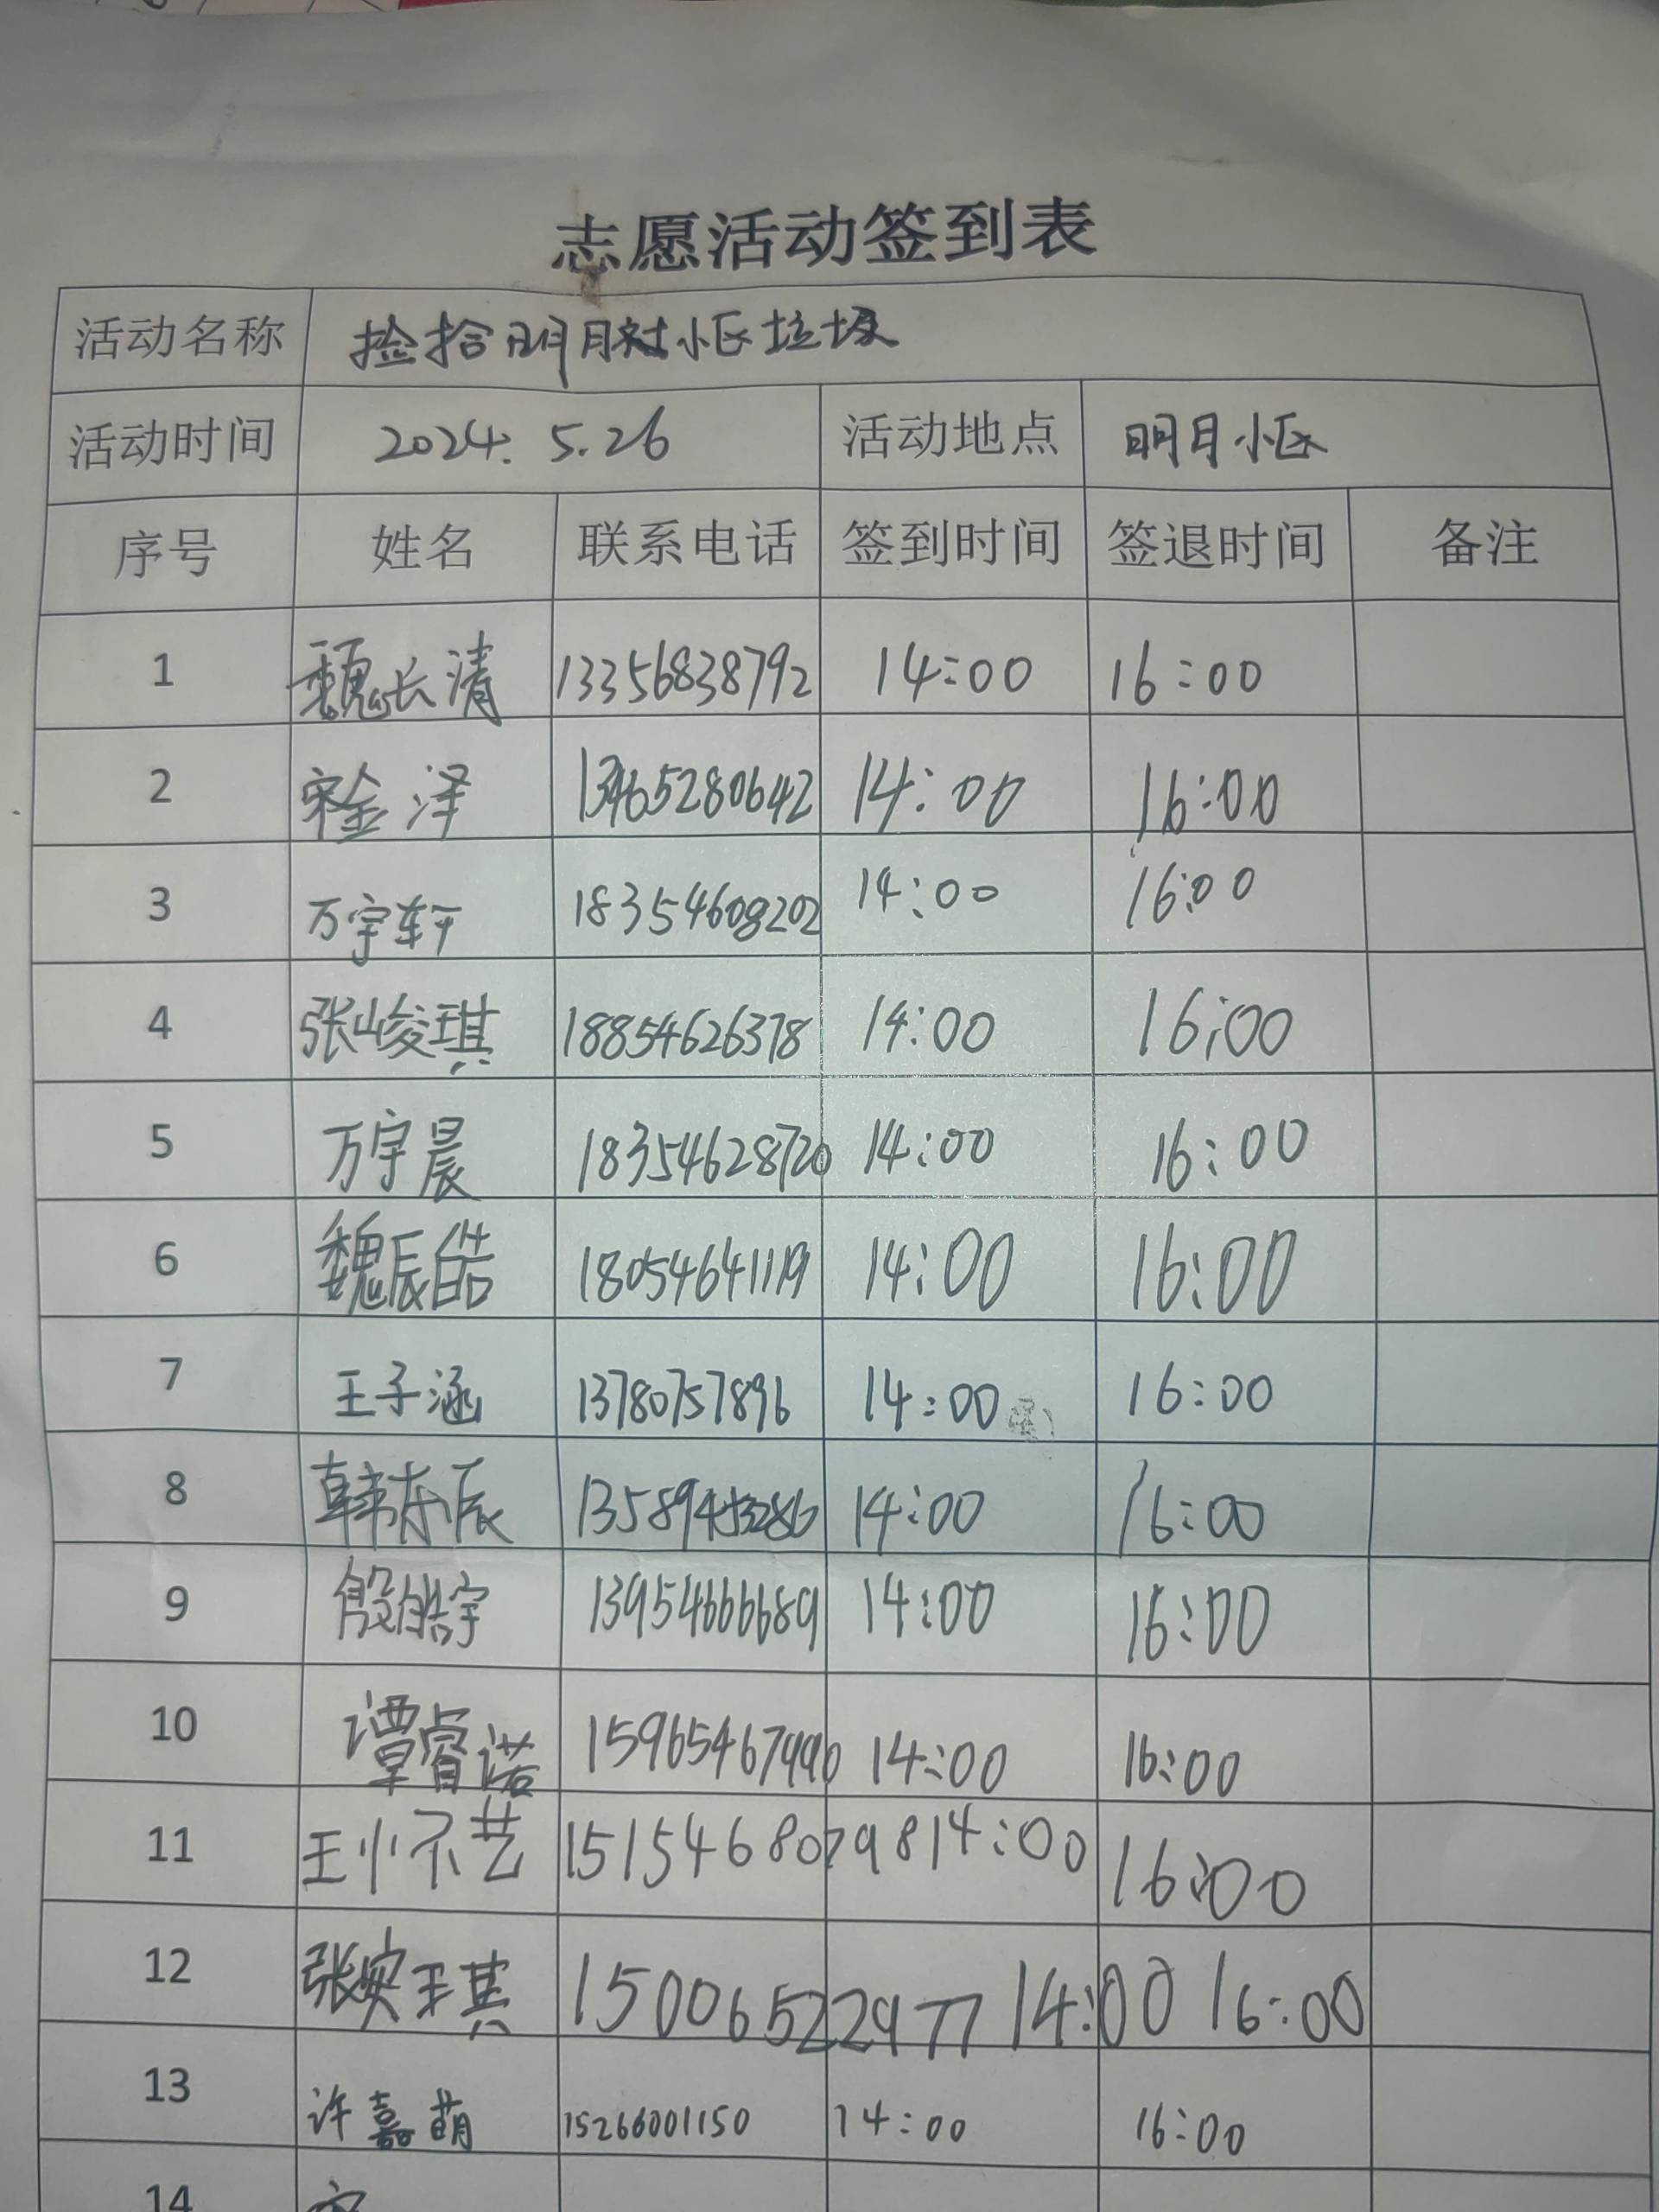 志愿活动签到表
活动名称 捡拾明月社小区垃圾
活动时间 2024.5.26 活动地点 明月小区
序号 姓名 联系电话 签到时间 签退时间 备注
1 魏长清 13356838792 14:00 16:00
2 宋金泽 13465280642 14:00 16:00
3 万宇轩 18354608202 14:00 16:00
4 张峻琪 18854626378 14:00 16:00
5 万宇晨 18354628720 14:00 16:00
6 魏辰皓 18054641119 14:00 16:00
7 王子涵 13780757896 14:00 16:00
8 韩东辰 14:00 16:00
9 殷皓宇 13954666689 14:00 16:00
10 谭睿诺 14:00 16:00
11 王小不艺 15154680798 14:00 16:00
12 张安琪 15006522977 14:00 16:00
13 许嘉萌 15266001150 14:00 16:00
14